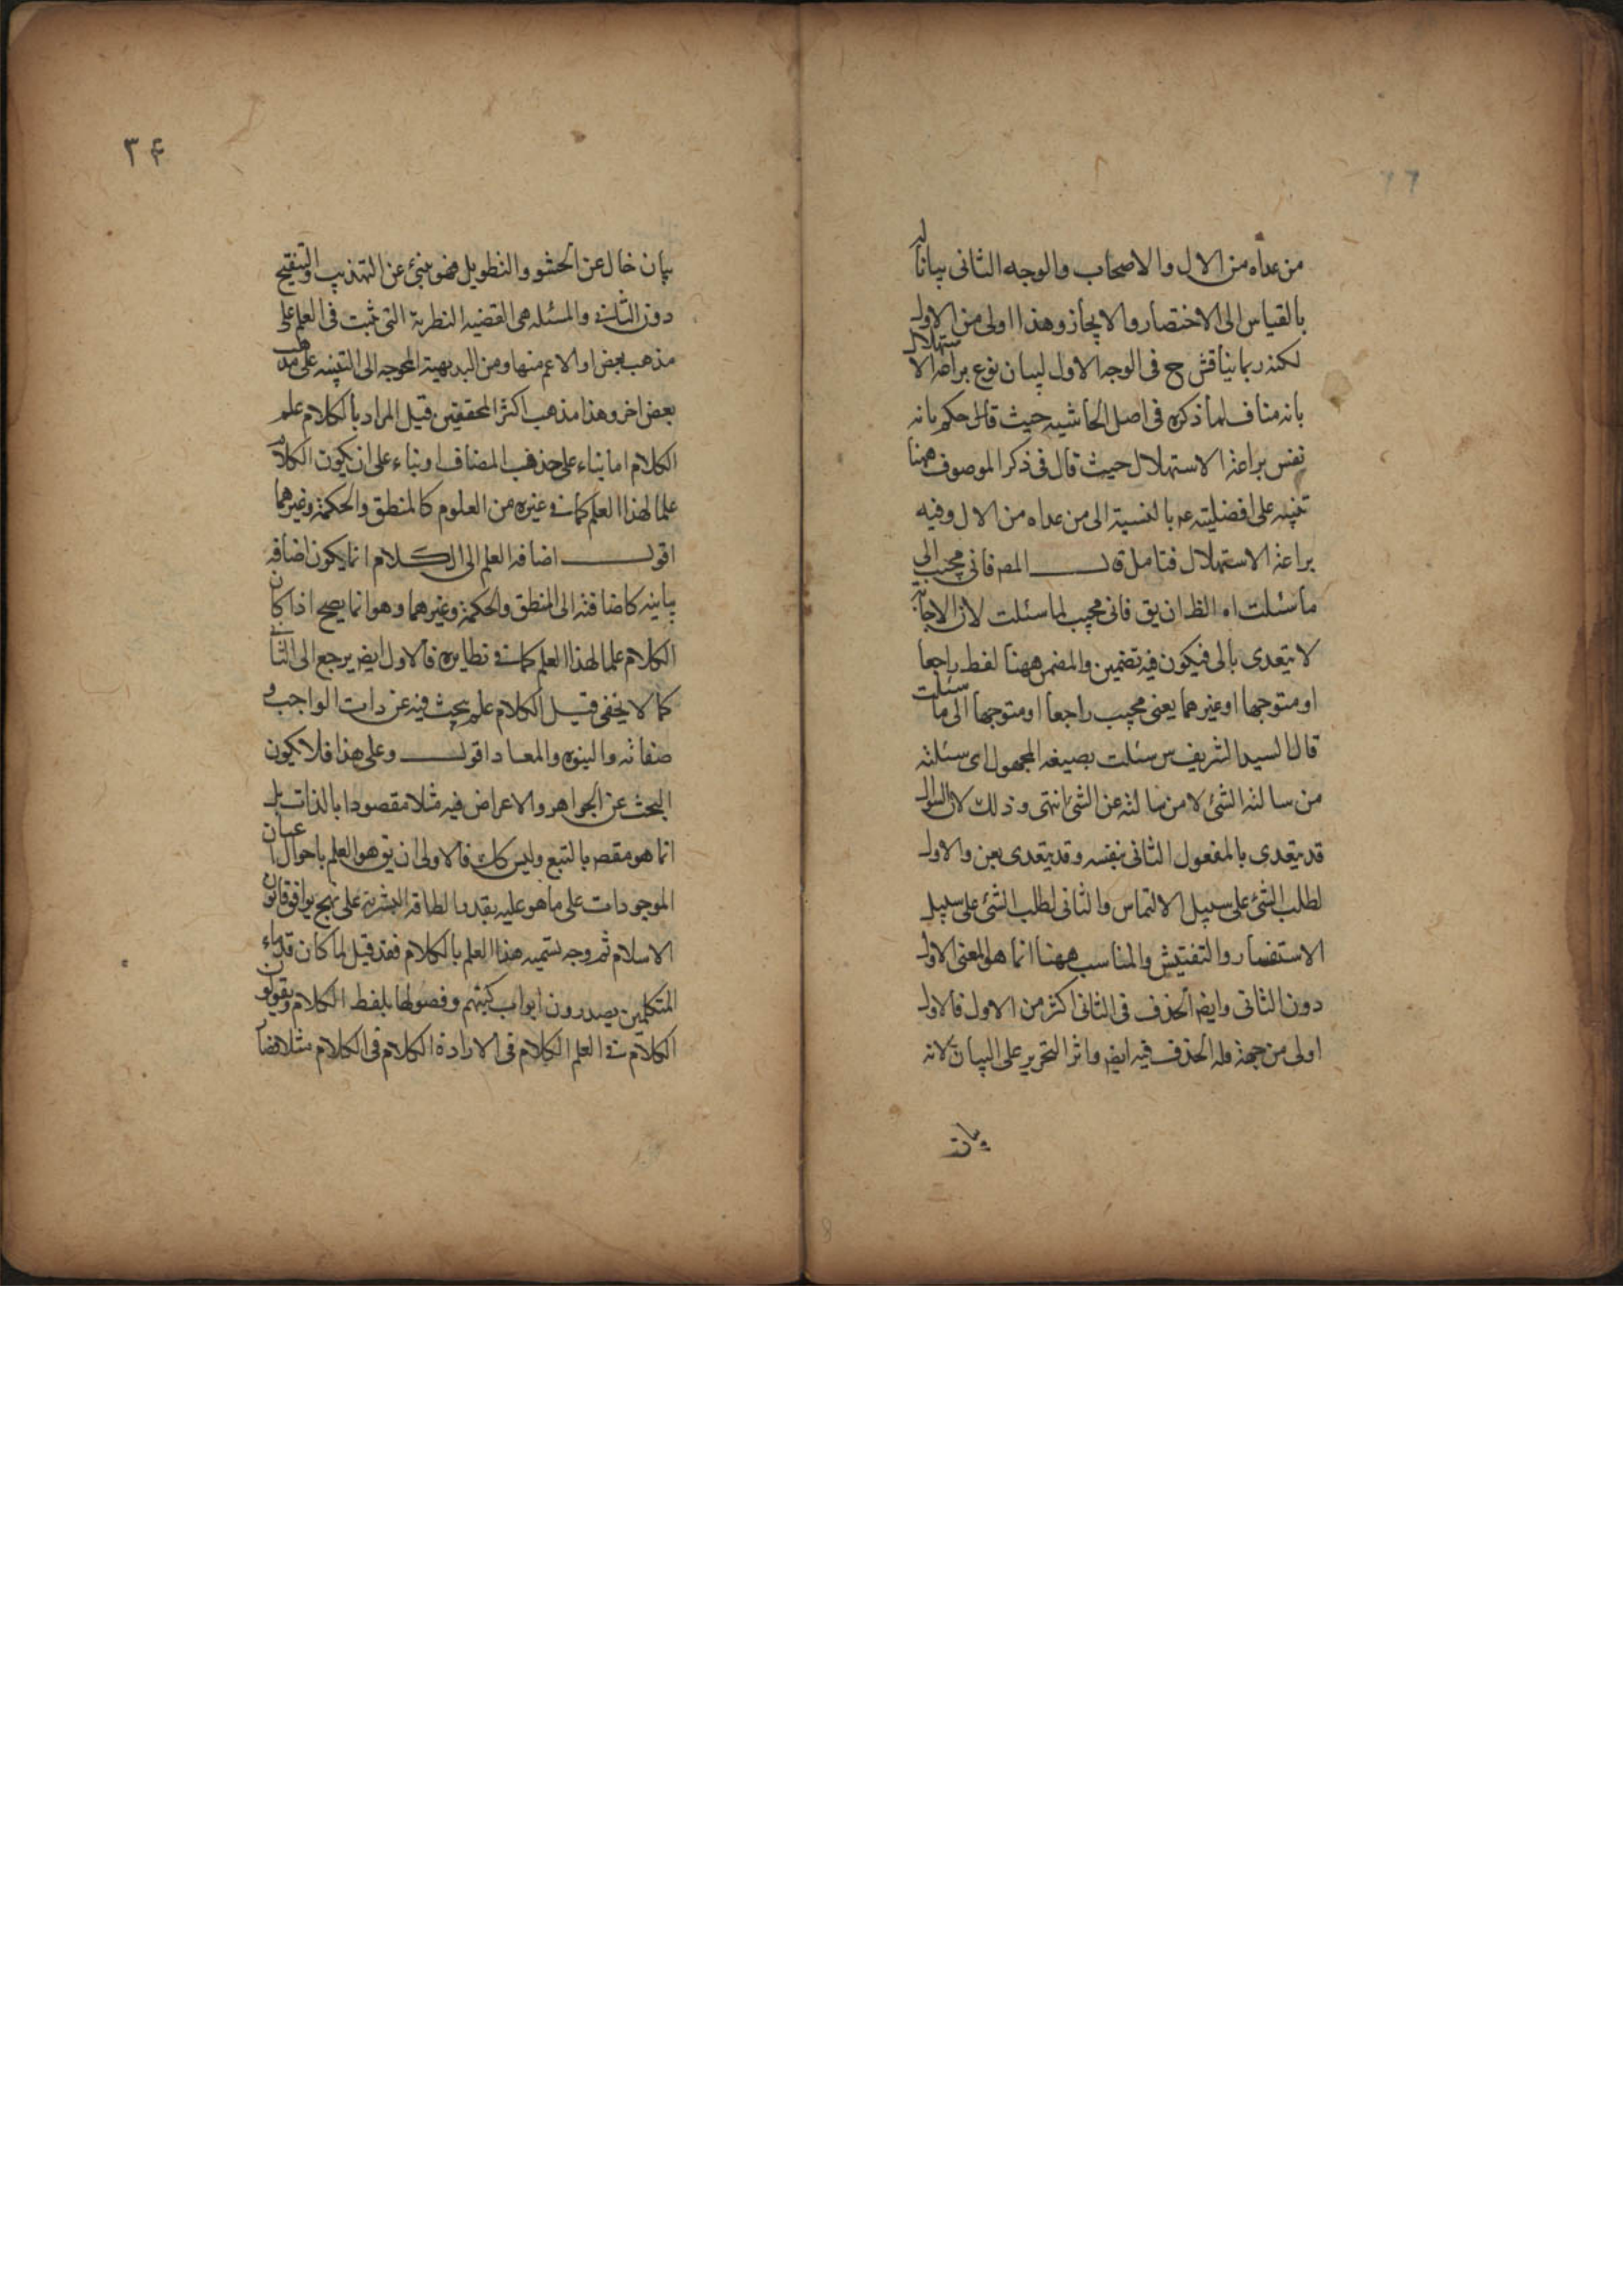 من عداه من الال والاصحاب والوجه الثانى بيانا له
بالقياس الى الاختصار والايجاز وهذا اولى من الاول
لكنه ربما يناقش ح فى الوجه الاول لبيان نوع براعة الاستهلال
بانه مناف لما ذكره فى اصل الحاشيه حيث قال حكم بانه
نفس براعة الاستهلال حيث قال فى ذكر الموصوف ههنا
تنبيه على افضليته عم بالنسبة الى من عداه من الال وفيه
براعة الاستهلال فتامل قال المصه فانى مجيب الى
ما سئلت اه الظ ان يق فانى مجيب لما سئلت لان الاجابة
لا يتعدى بالى فيكون فيه تضمين والمضمن ههنا لفظ راجعا
او متوجها او غيرهما يعنى مجيب راجعا او متوجها الى ما سئلت
قال السيد الشريف س سئلت بصيغه المجهول اى سئلته
من سالته الشئ لا من سالته عن الشئ انتهى وذلك لان السوال
قد يتعدى بالمفعول الثانى بنفسه وقد يتعدى بعن والاول
لطلب الشئ على سبيل الالتماس والثانى لطلب الشئ على سبيل
الاستفسار والتفتيش والمناسب ههنا انما هو المعنى الاول
دون الثانى وايض الحذف فى الثانى اكثر من الاول فالاول
اولى من جهة قله الحذف فيه ايض واثر التحرير على البيان لانه
بيان
٣۴
بيان خال عن الحشو والتطويل فهو مبنئ عن التهذيب والتنقيح
دون الثانى والمسئله هى القضيه النظرية التى تثبت فى العلم على
مذهب بعض او الاعم منها ومن البديهية المحوجه الى التنبيه على مذهب
بعض اخر وهذا مذهب اكثر المحققين قيل المراد بالكلام علم
الكلام اما بناء على حذف المضاف او بناء على ان يكون الكلام
علما لهذا العلم كما فى غيره من العلوم كالمنطق والحكمة وغيرهما
اقول اضافه العلم الى الكلام انما يكون اضافه
بيانيه كاضافته الى المنطق والحكمة وغيرهما وهو انما يصح اذا كان
الكلام علما لهذا العلم كما فى نظايره فالاول ايض يرجع الى الثانى
كما لا يخفى قيل الكلام علم يبحث فيه عن ذات الواجب و
صفاته والنبوه والمعاد اقول وعلى هذا فلا يكون
البحث عن الجواهر والاعراض فيه مثلا مقصودا بالذات بل
انما هو مقصه بالتبع وليس كك فالاولى ان يق هو العلم باحوال اعيان
الموجودات على ما هو عليه بقدر الطاقه البشرية على نهج يوافق قانون
الاسلام ثم وجه تسميه هذا العلم بالكلام فقد قيل لما كان قدماء
المتكلمين يصدرون ابواب كتبهم وفصولها بلفظ الكلام ويقولون
الكلام فى العلم الكلام فى الارادة الكلام فى الكلام مثلا فصار